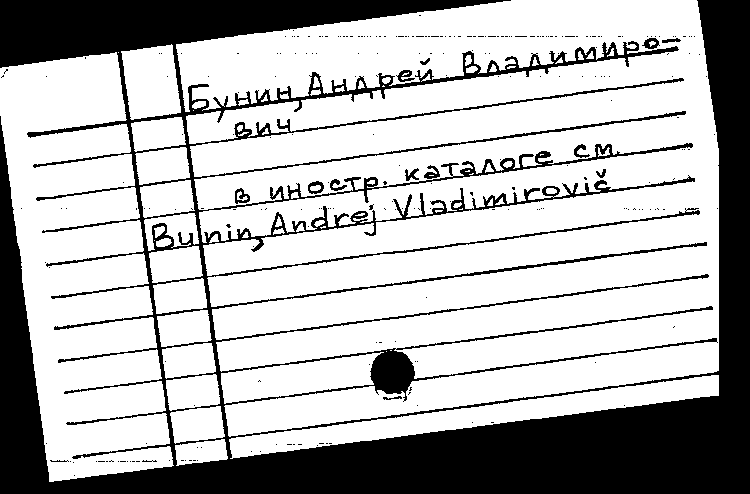 Бунин, Андрей Владимиро-
вич
в иностр. каталоге см.
Bunin, Andrej Vladimirovič